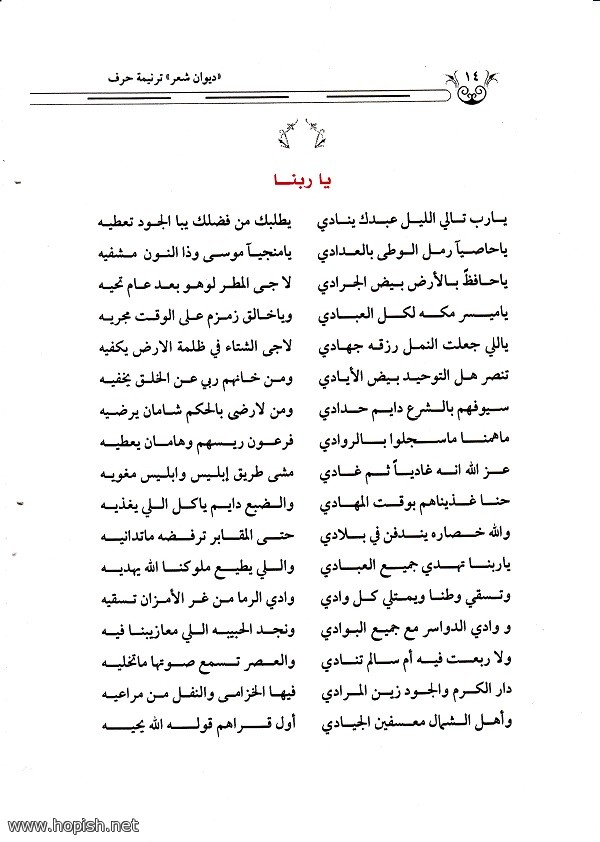 ١٤
«ديوان شعر» ترنيمة حرف
يا ربنـا
يـارب تـالي الليـل عبـدك ينـادي يطلبك من فضلك يبا الجود تعطيه
ياحاصيآ رمـل الـوطى بالعـدادي يامنجيـآ موسـى وذا النـون مشفيه
ياحـافظ بـالأرض بـيض الجـرادي لا جـى المطـر لوهـو بعـد عـام تحيه
ياميـسر مكـه لكـل العبـادي وياخـالق زمـزم علـى الـوقت مجريه
ياللي جعلت النمـل رزقـه جهـادي لاجى الشتاء في ظلمة الارض يكفيه
تنصر هـل التوحيـد بيض الأيـادي ومـن خـانهم ربي عـن الخلـق يخفيه
سيوفهم بالـشرع دايـم حـدادي ومـن لارضى بـالحكم شامان يرضيه
ماهمنـا ماسـجلوا بـالروادي فرعـون ريسـهم وهامـان يعطيـه
عـز الله انـه غاديـاً ثـم غـادي مشى طريق إبليس وابليس مغويه
حنـا غذينـاهم بوقـت المهـادي والـضبع دايم ياكـل الـلي يغذيه
والله خصاره ينـدفن في بـلادي حتـى المقـابر ترفـضه ماتدانيـه
ياربنـا تهـدي جميـع العبـادي والـلي يطيـع ملوكنـا الله يهديـه
وتـسقي وطنـا ويمتـلي كـل وادي وادي الرمـا مـن غـر الأمـزان تسقيه
و وادي الدواسر مع جميع البـوادي ونجـد الحبيبـه الـلي معازيبنـا فيـه
ولا ربعـت فيـه أم سـالم تنـادي والعصر تـسمع صـوتها ماتخليـه
دار الكـرم والجـود زيـن المـرادي فيهـا الخزامـى والنفـل مـن مراعيـه
وأهـل الـشمال معـسفين الجيـادي أول قـراهم قولـه الله يحييـه
www.hopish.net